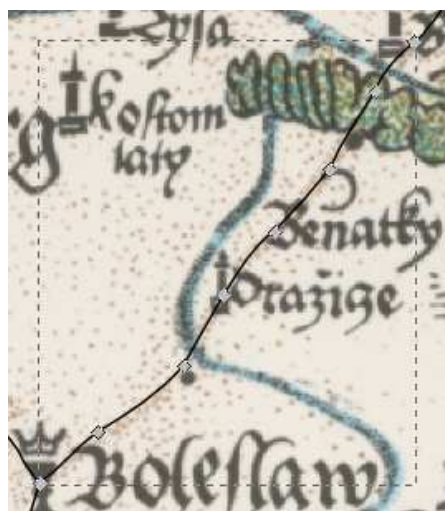 Lysa
koſtom
laty
Benatky
Dražige
Boleſlaw